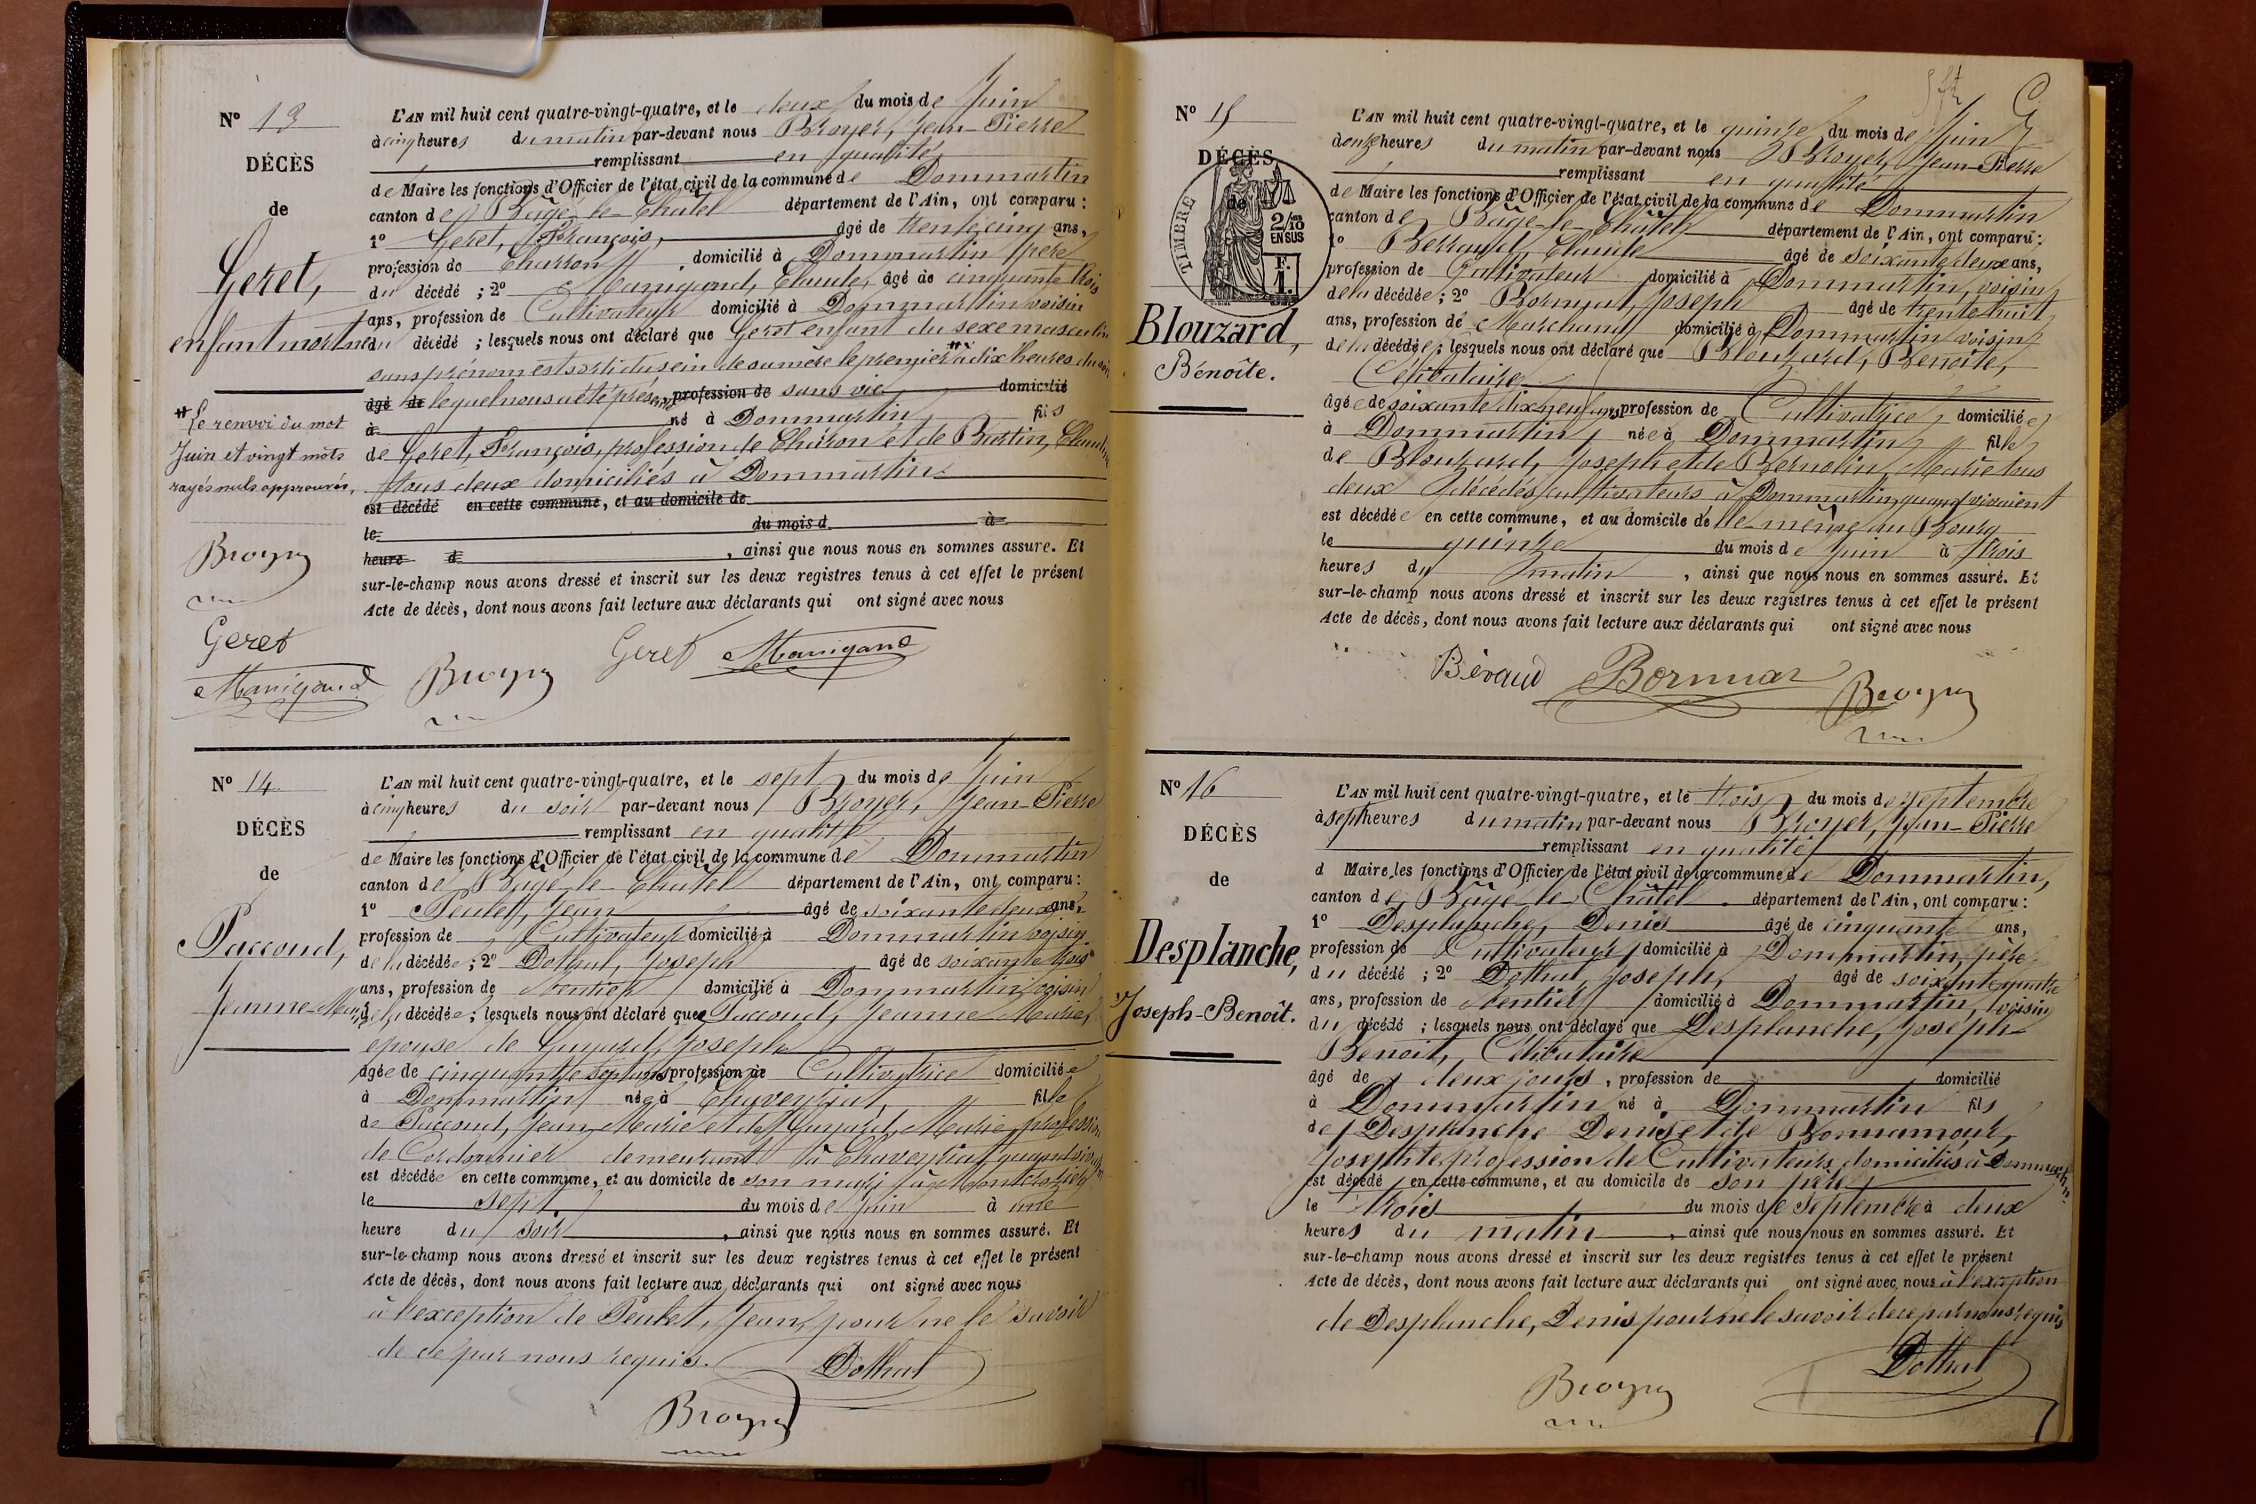 N° 13
DÉCÈS
de
Geret,
enfant mort né
# Le renvoi du mot
Juin et vingt mots
rayés nuls approuvés.
Broyer
Geret
Manigand
L'AN mil huit cent quatre-vingt-quatre, et le deux du mois de Juin
à cinq heures du matin par-devant nous Broyer, Jean-Pierre
remplissant en qualité
de Maire les fonctions d'Officier de l'état civil de la commune de Dommartin
canton de Bâgé-le-Châtel département de l'Ain, ont comparu :
1° Geret, François, âgé de trente cinq ans,
profession de Charron domicilié à Dommartin père
du décédé ; 2° Manigand, Claude, âgé de cinquante trois
ans, profession de Cultivateur domicilié à Dommartin voisin
du décédé ; lesquels nous ont déclaré que Geret enfant du sexe masculin
sans prénom est sorti du sein de sa mère le premier # à dix heures du soir
âgé de lequel nous a été présenté profession de sans vie domicilié
à né à Dommartin fils
de Geret, François, profession de Charon et de Bertin, Claudine
tous deux domiciliés à Dommartin
est décédé en cette commune, et au domicile de
le du mois d à
heure d , ainsi que nous nous en sommes assuré. Et
sur-le-champ nous avons dressé et inscrit sur les deux registres tenus à cet effet le présent
Acte de décès, dont nous avons fait lecture aux déclarants qui ont signé avec nous
Broyer Geret Manigand
N° 14
DÉCÈS
de
Paccoud,
Jeanne-Marie
L'AN mil huit cent quatre-vingt-quatre, et le sept du mois de Juin
à cinq heures du soir par-devant nous Broyer, Jean-Pierre
remplissant en qualité
de Maire les fonctions d'Officier de l'état civil de la commune de Dommartin
canton de Bâgé-le-Châtel département de l'Ain, ont comparu :
1° Peulet, Jean âgé de soixante deux ans,
profession de Cultivateur domicilié à Dommartin voisin
de la décédée ; 2° Dothal, Joseph âgé de soixante trois
ans, profession de Rentier domicilié à Dommartin voisin
de la décédée ; lesquels nous ont déclaré que Paccoud, Jeanne Marie,
épouse de Guyard, Joseph
âgée de cinquante sept ans profession de Cultivatrice domiciliée
à Dommartin née à Chaveyriat, fille
de Paccoud, Jean-Marie et de Guyard, Marie, profession
de Cordonnier demeurant à Chaveyriat quand
est décédée en cette commune, et au domicile de son mari
le sept du mois de Juin à une
heure du soir , ainsi que nous nous en sommes assuré. Et
sur-le-champ nous avons dressé et inscrit sur les deux registres tenus à cet effet le présent
Acte de décès, dont nous avons fait lecture aux déclarants qui ont signé avec nous
à l'exception de Peulet, Jean, pour ne le savoir
de ce par nous requis. Dothal
Broyer
N° 15
DÉCÈS
de
TIMBRE
2/10 EN SUS
F. 1.
Blouzard,
Bénoîte.
L'AN mil huit cent quatre-vingt-quatre, et le quinze du mois de Juin
à onze heures du matin par-devant nous Broyer, Jean-Pierre
remplissant en qualité
de Maire les fonctions d'Officier de l'état civil de la commune de Dommartin
canton de Bâgé-le-Châtel département de l'Ain, ont comparu :
1° Berraud, Claude âgé de soixante deux ans,
profession de Cultivateur domicilié à Dommartin, voisin
de la décédée ; 2° Bornuat, Joseph âgé de trente huit
ans, profession de Marchand domicilié à Dommartin voisin
de la décédée ; lesquels nous ont déclaré que Blouzard, Benoite,
Célibataire
âgée de soixante dix neuf ans profession de Cultivatrice, domiciliée
à Dommartin, née à Dommartin, fille
de Blouzard, Joseph et de Bernolin, Marie tous
deux décédés cultivateurs à Dommartin quand vivaient
est décédée en cette commune, et au domicile de elle-même au Bourg
le quinze du mois de Juin à trois
heures du matin , ainsi que nous nous en sommes assuré. Et
sur-le-champ nous avons dressé et inscrit sur les deux registres tenus à cet effet le présent
Acte de décès, dont nous avons fait lecture aux déclarants qui ont signé avec nous
Béraud Bornuat Broyer
N° 16
DÉCÈS
de
Desplanche,
Joseph-Benoît.
L'AN mil huit cent quatre-vingt-quatre, et le trois du mois de septembre
à sept heures du matin par-devant nous Broyer, Jean-Pierre
remplissant en qualité
d Maire les fonctions d'Officier de l'état civil de la commune de Dommartin,
canton de Bâgé-le-Châtel département de l'Ain, ont comparu :
1° Desplanche, Denis âgé de cinquante ans,
profession de Cultivateur domicilié à Dommartin, père
du décédé ; 2° Dothal, Joseph, âgé de soixante quatre
ans, profession de Rentier domicilié à Dommartin, voisin
du décédé ; lesquels nous ont déclaré que Desplanche, Joseph-
Benoit, Célibataire
âgé de deux jours, profession de domicilié
à Dommartin né à Dommartin fils
de Desplanche Denis et de Bonnamour,
Josephte profession de Cultivateurs domiciliés à Dommartin
est décédé en cette commune, et au domicile de son père
le trois du mois de septembre à deux
heures du matin , ainsi que nous nous en sommes assuré. Et
sur-le-champ nous avons dressé et inscrit sur les deux registres tenus à cet effet le présent
Acte de décès, dont nous avons fait lecture aux déclarants qui ont signé avec nous à l'exception
de Desplanche, Denis pour ne le savoir de ce par nous requis
Dothal
Broyer